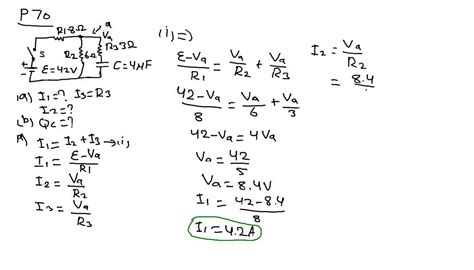 P70
R₁ 8Ω
a
Va
R₂ 6Ω
R₃ 3Ω
S
+
-
ε=42V
C=4μF
(a) I₁=? I₃=R₃
I₂=?
(b) Qc=?
A) I₁=I₂+I₃→(i)
I₁ = (ε-Va)/R₁
I₂ = Va/R₂
I₃ = Va/R₃
(i) ⇒
(ε-Va)/R₁ = Va/R₂ + Va/R₃
(42-Va)/8 = Va/6 + Va/3
42-Va = 4Va
Va = 42/5
Va = 8.4V
I₁ = (42-8.4)/8
I₁ = 4.2A
I₂ = Va/R₂
= 8.4/